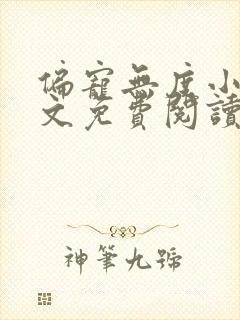 偏寵無度小
文免費閱讀
神筆九號